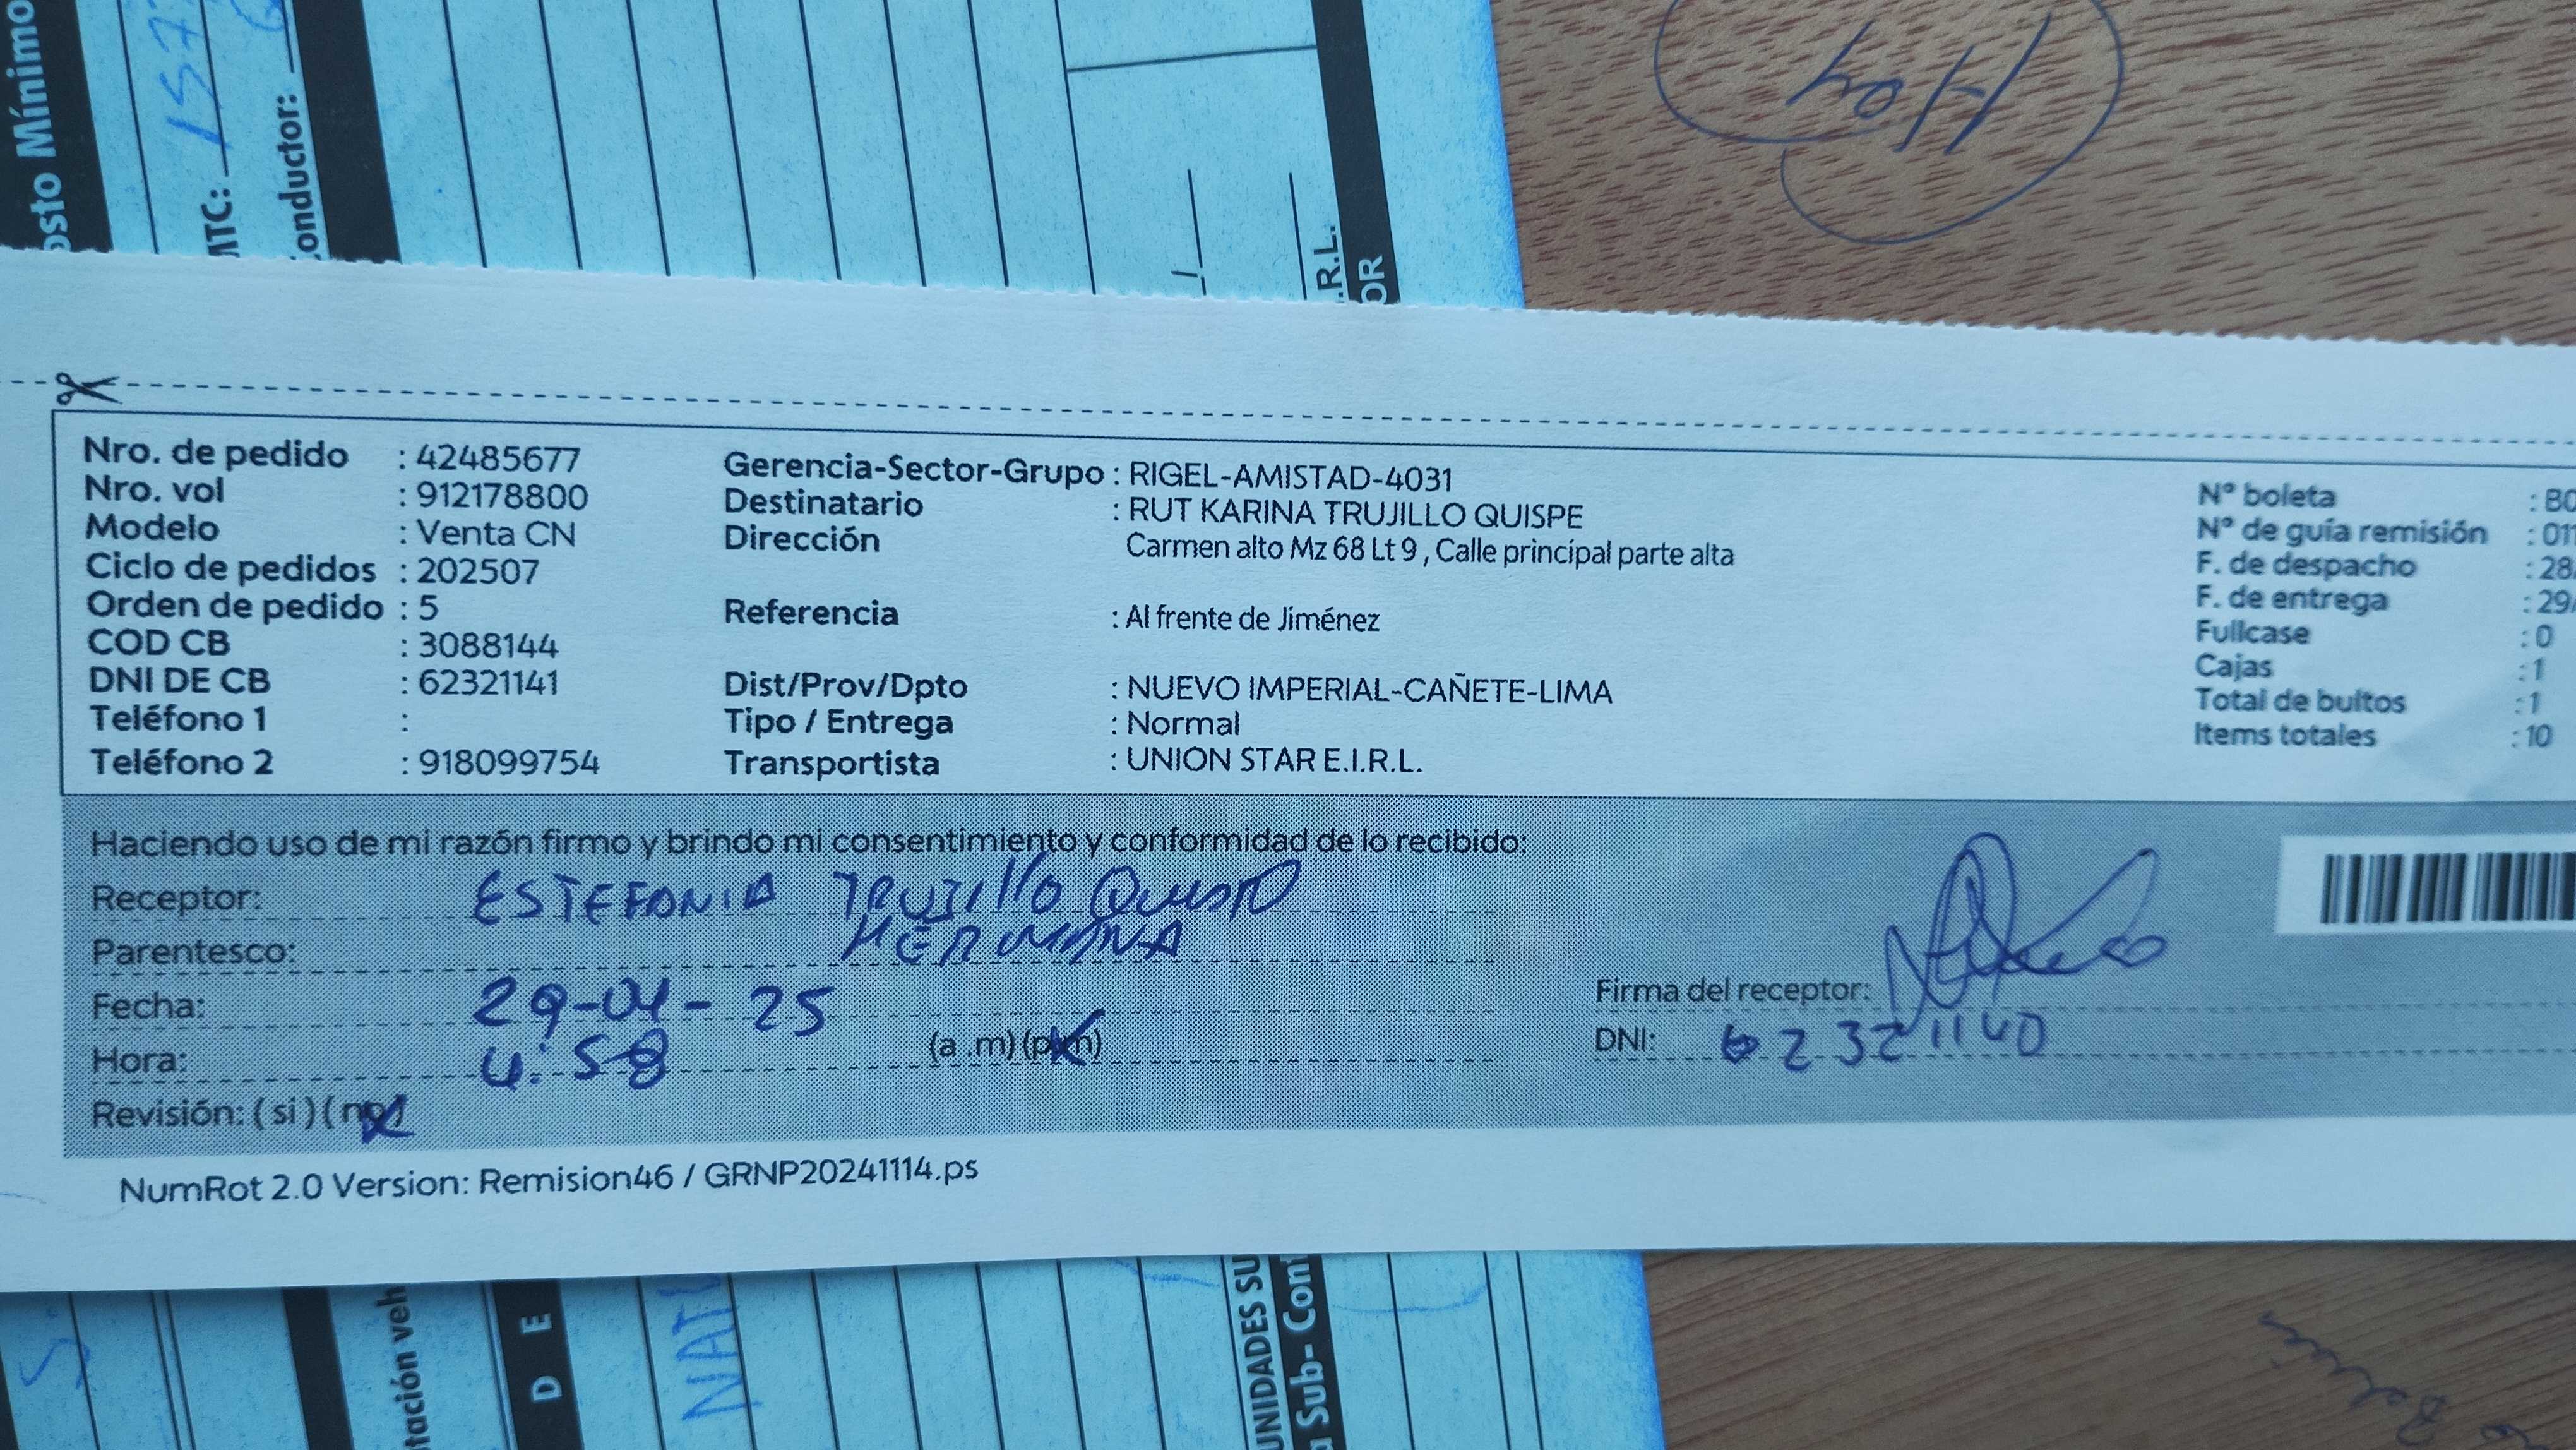 osto Mínimo
MTC: 157
Conductor:
.R.L.
OR
Hoy
Nro. de pedido : 42485677
Nro. vol : 912178800
Modelo : Venta CN
Ciclo de pedidos : 202507
Orden de pedido : 5
COD CB : 3088144
DNI DE CB : 62321141
Teléfono 1 :
Teléfono 2 : 918099754
Gerencia-Sector-Grupo : RIGEL-AMISTAD-4031
Destinatario : RUT KARINA TRUJILLO QUISPE
Dirección Carmen alto Mz 68 Lt 9 , Calle principal parte alta
Referencia : Al frente de Jiménez
Dist/Prov/Dpto : NUEVO IMPERIAL-CAÑETE-LIMA
Tipo / Entrega : Normal
Transportista : UNION STAR E.I.R.L.
N° boleta : B0
N° de guía remisión : 011
F. de despacho : 28/
F. de entrega : 29/
Fullcase : 0
Cajas : 1
Total de bultos : 1
Items totales : 10
Haciendo uso de mi razón firmo y brindo mi consentimiento y conformidad de lo recibido:
Receptor: ESTEFANIA TRUJILLO
Parentesco: HERMANA
Fecha: 29-04-25
Hora: 4:58 (a .m) (p.m)
Revisión: ( si ) ( no )
Firma del receptor:
DNI: 62321140
NumRot 2.0 Version: Remision46 / GRNP20241114.ps
tación veh
D E
NATU
UNIDADES SU
a Sub- Con